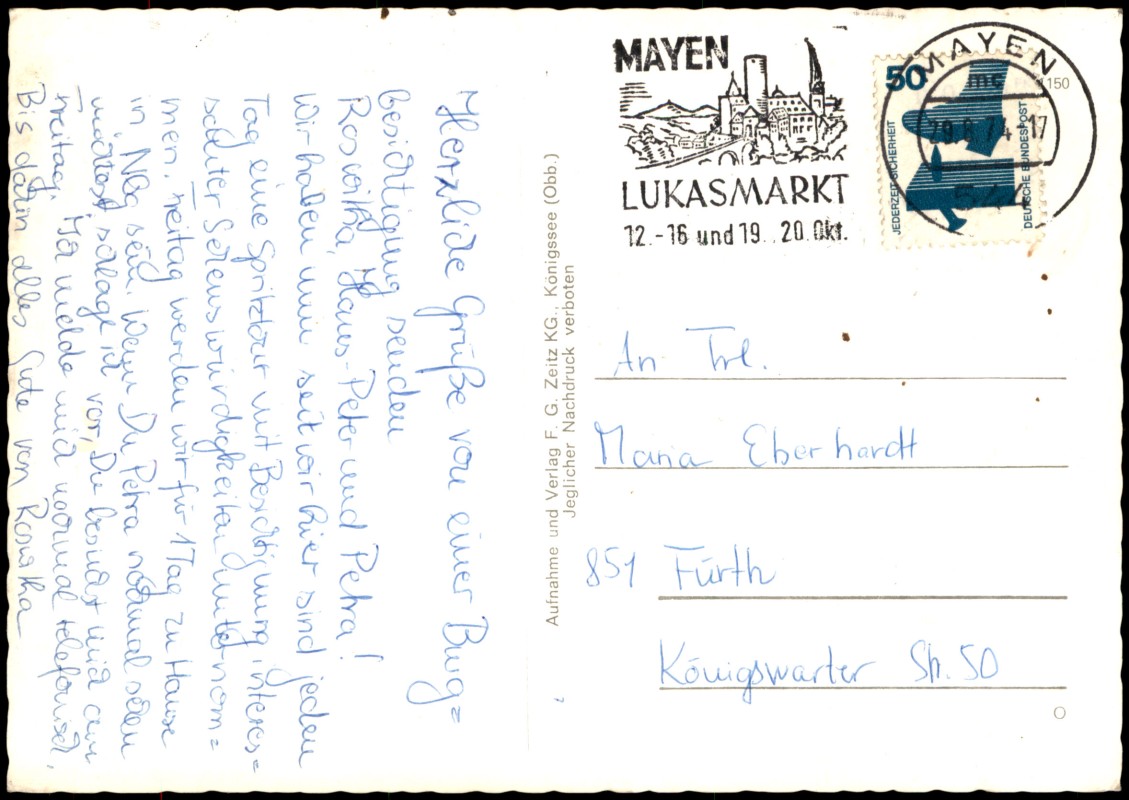 Herzliche Grüße von einer Burg=
besichtigung senden
Roswitha, Hans-Peter und Petra!
Wir haben nun seit wir hier sind jeden
Tag eine Spritztour mit Besichtigung interes=
santer Sehenswürdigkeiten unternom=
men. Freitag werden wir für 1 Tag zu Hause
in Nbg sein. Wenn Du Petra nochmal sehen
möchtest, schlage ich vor, Du besuchst mich am
Freitag. Ich melde mich nochmal telefonisch.
Bis dahin alles Gute von Roswitha
Aufnahme und Verlag F. G. Zeitz KG., Königssee (Obb.)
Jeglicher Nachdruck verboten
MAYEN
LUKASMARKT
12.-16 und 19., 20. Okt.
50
JEDERZEIT SICHERHEIT
DEUTSCHE BUNDESPOST
MAYEN
mc
74-17
54
1150
An Frl.
Maria Eberhardt
851 Fürth
Königswarter Str. 50